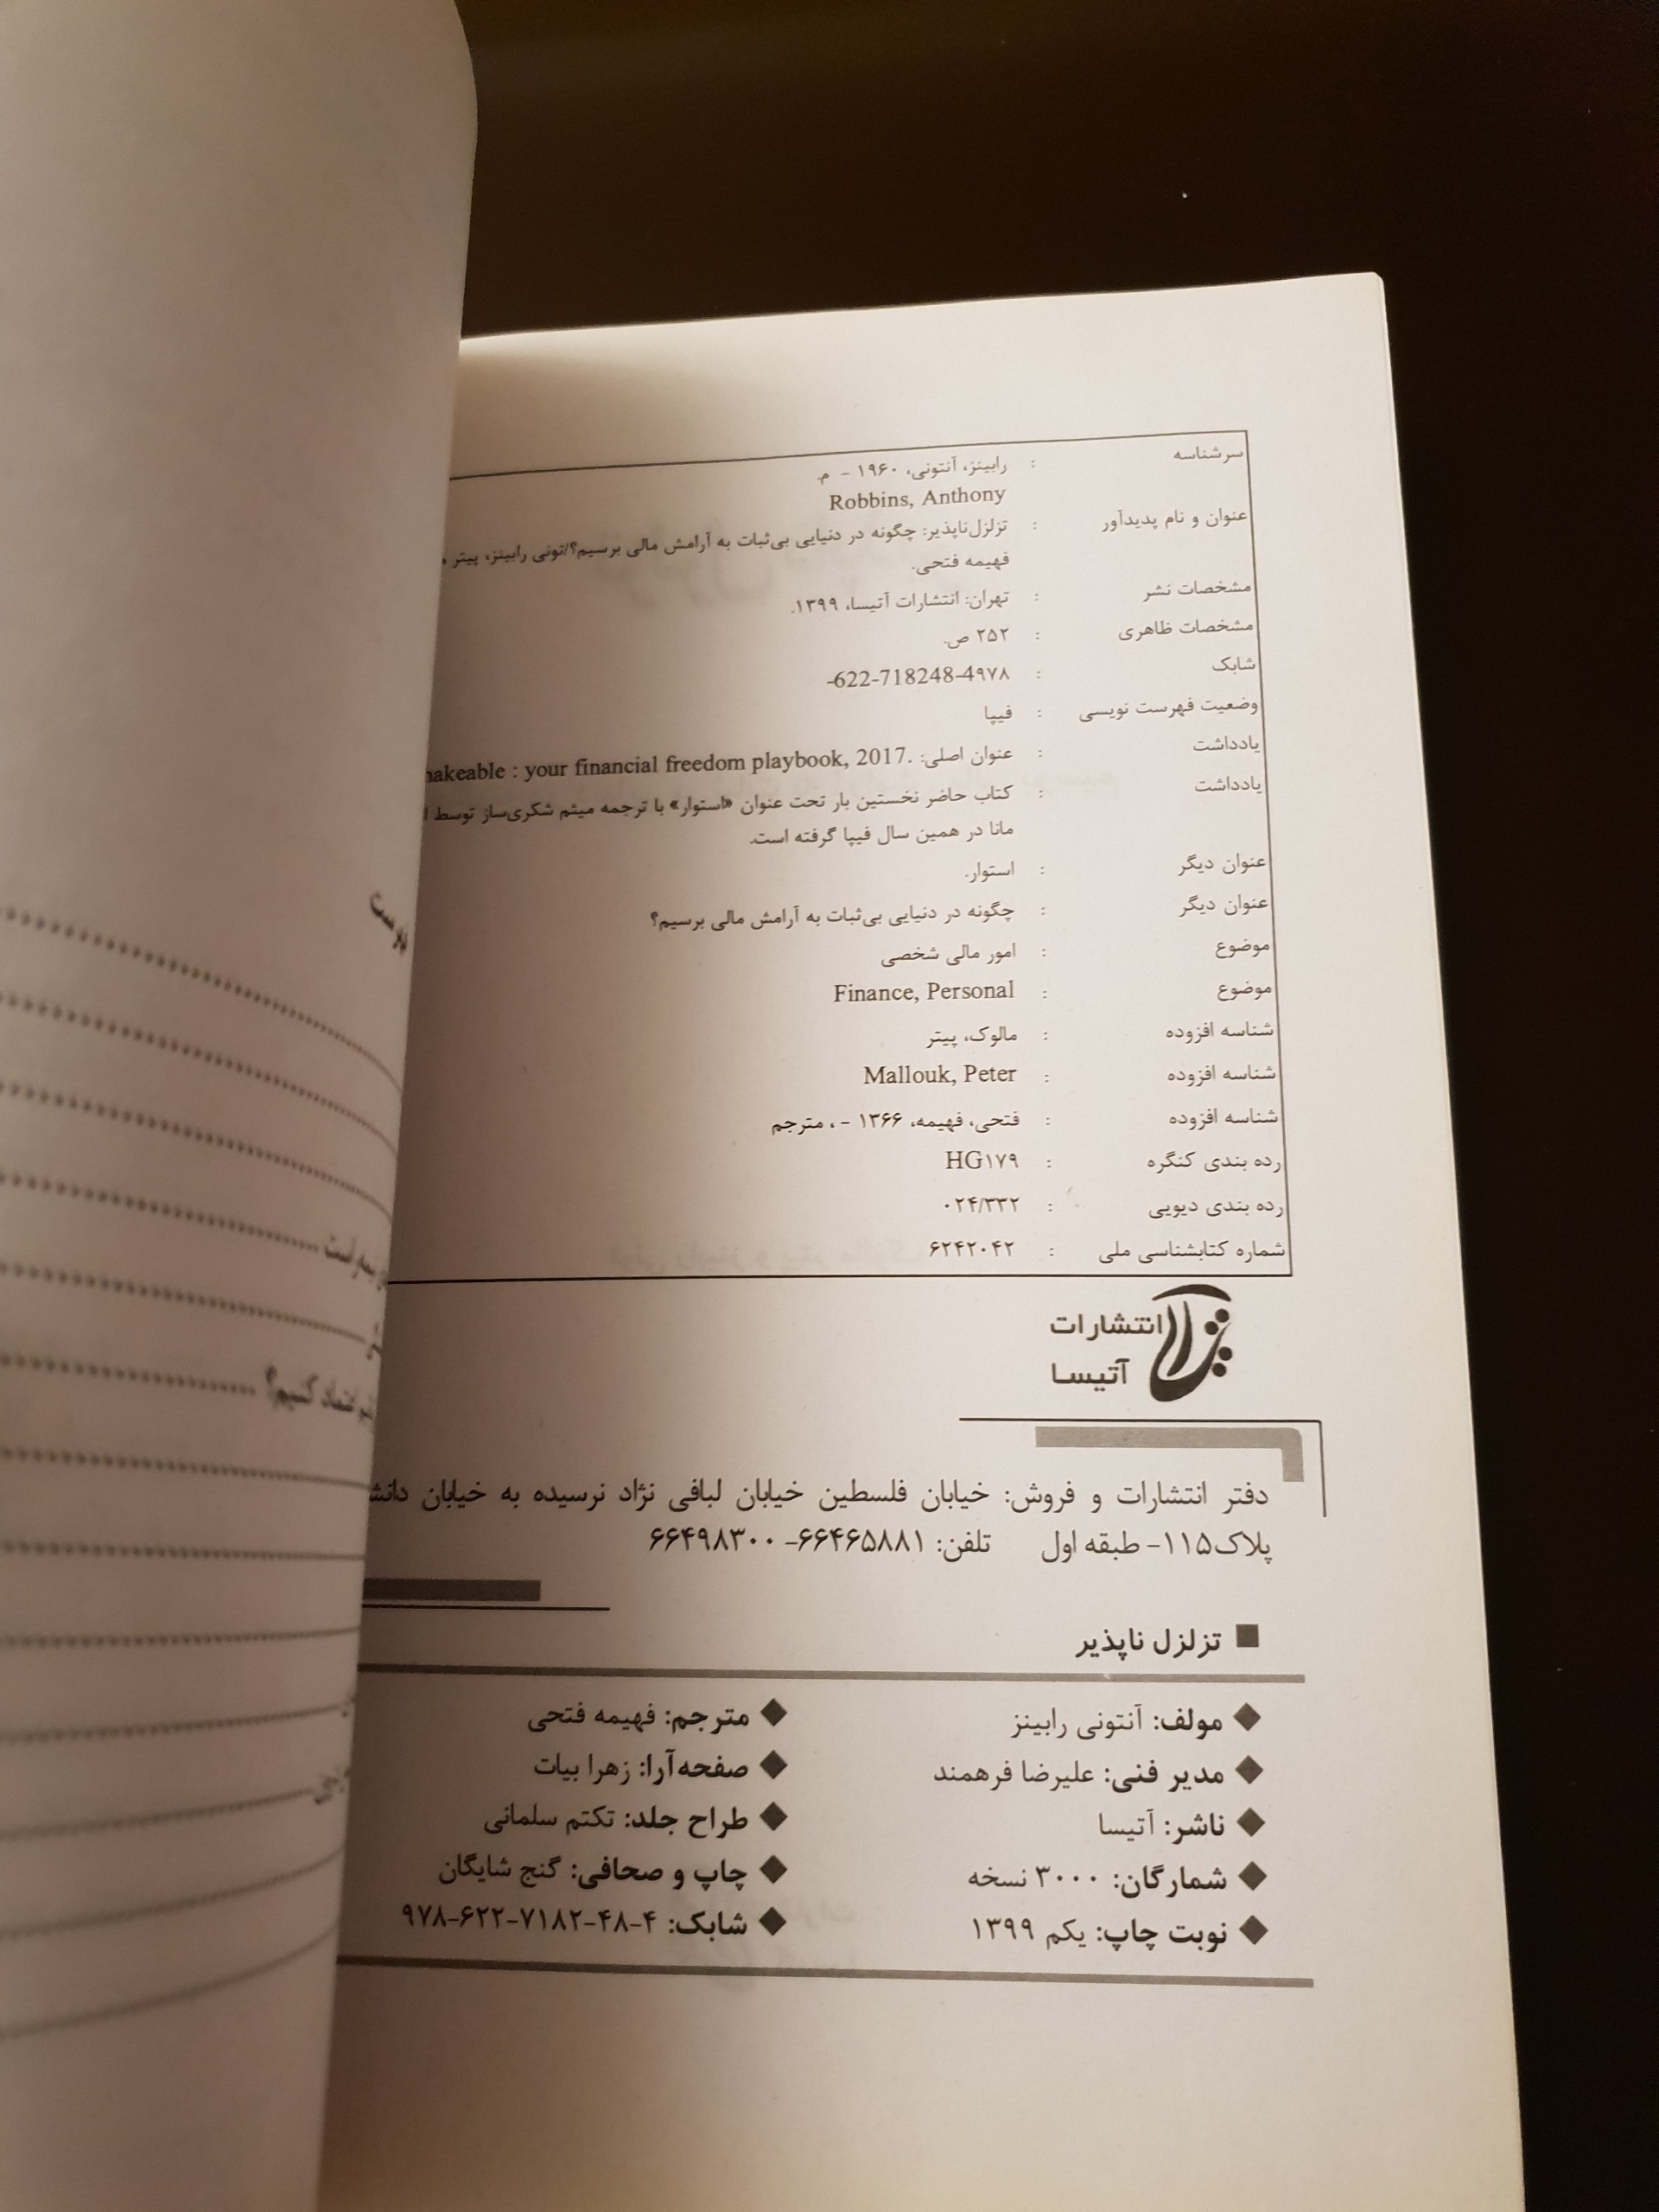 سرشناسه : رابینز، آنتونی، ۱۹۶۰ - م.
Robbins, Anthony
عنوان و نام پدیدآور : تزلزل‌ناپذیر: چگونه در دنیایی بی‌ثبات به آرامش مالی برسیم؟/تونی رابینز، پیتر
فهیمه فتحی.
مشخصات نشر : تهران: انتشارات آتیسا، ۱۳۹۹.
مشخصات ظاهری : ۲۵۲ ص.
شابک : ۹۷۸-622-718248-4
وضعیت فهرست نویسی : فیپا
یادداشت : عنوان اصلی: .akeable : your financial freedom playbook, 2017
یادداشت : کتاب حاضر نخستین بار تحت عنوان «استوار» با ترجمه میثم شکری‌ساز توسط
مانا در همین سال فیپا گرفته است.
عنوان دیگر : استوار.
عنوان دیگر : چگونه در دنیایی بی‌ثبات به آرامش مالی برسیم؟
موضوع : امور مالی شخصی
موضوع : Finance, Personal
شناسه افزوده : مالوک، پیتر
شناسه افزوده : Mallouk, Peter
شناسه افزوده : فتحی، فهیمه، ۱۳۶۶ - ، مترجم
رده بندی کنگره : HG۱۷۹
رده بندی دیویی : ۰۲۴/۳۳۲
شماره کتابشناسی ملی : ۶۲۴۲۰۴۲
انتشارات
آتیسا
دفتر انتشارات و فروش: خیابان فلسطین خیابان لبافی نژاد نرسیده به خیابان دانش
پلاک۱۱۵- طبقه اول تلفن: ۶۶۴۶۵۸۸۱- ۶۶۴۹۸۳۰۰
تزلزل ناپذیر
مولف: آنتونی رابینز مترجم: فهیمه فتحی
مدیر فنی: علیرضا فرهمند صفحه‌آرا: زهرا بیات
ناشر: آتیسا طراح جلد: تکتم سلمانی
شمارگان: ۳۰۰۰ نسخه چاپ و صحافی: گنج شایگان
نوبت چاپ: یکم ۱۳۹۹ شابک: ۴-۴۸-۷۱۸۲-۶۲۲-۹۷۸
فهرست
اعتماد کنیم؟